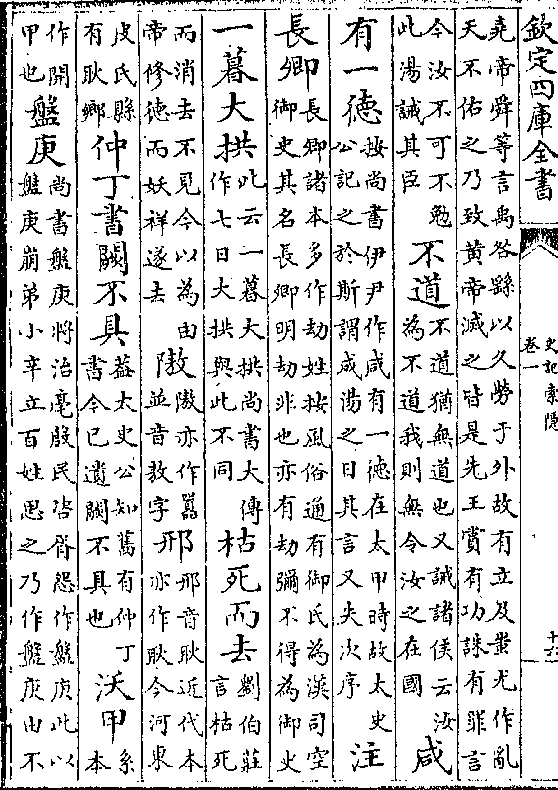 欽定四庫全書
史記索隱
卷一
十六
堯帝舜等言禹咎繇以久勞于外故有立及蚩尤作亂
天不佑之乃致黃帝滅之皆是先王賞有功誅有罪言
今汝不可不勉
此湯誡其臣
不道
不道猶無道也又誡諸侯云汝
為不道我則無令汝之在國
咸
有一德
按尚書伊尹作咸有一德在太甲時故太史
公記之於斯謂成湯之日其言又失次序
注
長卿
長卿諸本多作劫姓按風俗通有御氏為漢司空
御史其名長卿明劫非也亦有劫彌不得為御史
一暮大拱
此云一暮大拱尚書大傳
作七日大拱與此不同
枯死而去
劉伯莊
言枯死
而消去不見今以為由
帝修德而妖祥遂去
隞
隞亦作嚻
並音敖字
邢
邢音耿近代本
亦作耿今河東
皮氏縣
有耿鄉
仲丁書闕不具
蓋太史公知舊有仲丁
書今已遺闕不具也
沃甲
系
本
作開
甲也
盤庚
尚書盤庚將治亳殷民咨胥怨作盤庚此以
盤庚崩弟小辛立百姓思之乃作盤庚由不